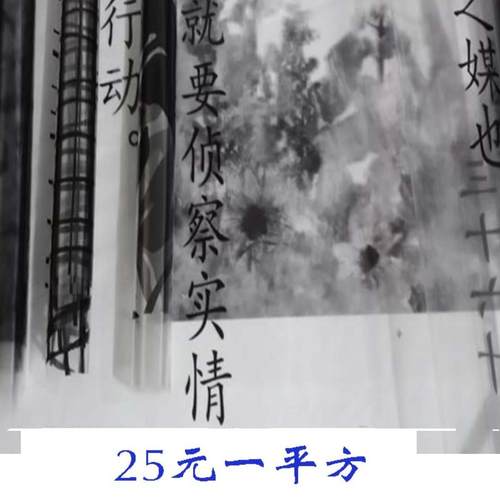 之媒也
三十六十
就要侦察实情
行动。
25元一平方